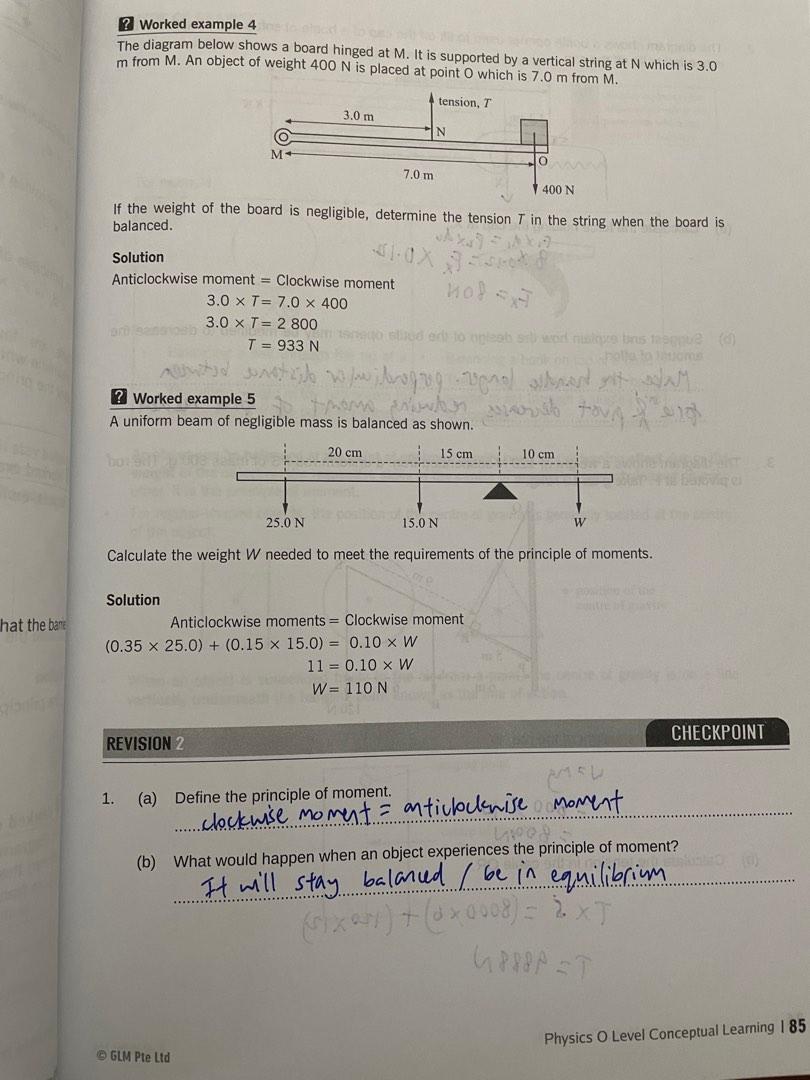 ? Worked example 4
The diagram below shows a board hinged at M. It is supported by a vertical string at N which is 3.0
m from M. An object of weight 400 N is placed at point O which is 7.0 m from M.
tension, T
3.0 m
N
M
O
7.0 m
400 N
If the weight of the board is negligible, determine the tension T in the string when the board is
balanced.
Solution
Anticlockwise moment = Clockwise moment
3.0 × T = 7.0 × 400
3.0 × T = 2 800
T = 933 N
? Worked example 5
A uniform beam of negligible mass is balanced as shown.
20 cm 15 cm 10 cm
25.0 N 15.0 N W
Calculate the weight W needed to meet the requirements of the principle of moments.
Solution
hat the
Anticlockwise moments = Clockwise moment
(0.35 × 25.0) + (0.15 × 15.0) = 0.10 × W
11 = 0.10 × W
W = 110 N
REVISION 2 CHECKPOINT
1. (a) Define the principle of moment.
clockwise moment = anticlockwise moment
(b) What would happen when an object experiences the principle of moment?
It will stay balanced / be in equilibrium
Physics O Level Conceptual Learning | 85
© GLM Pte Ltd